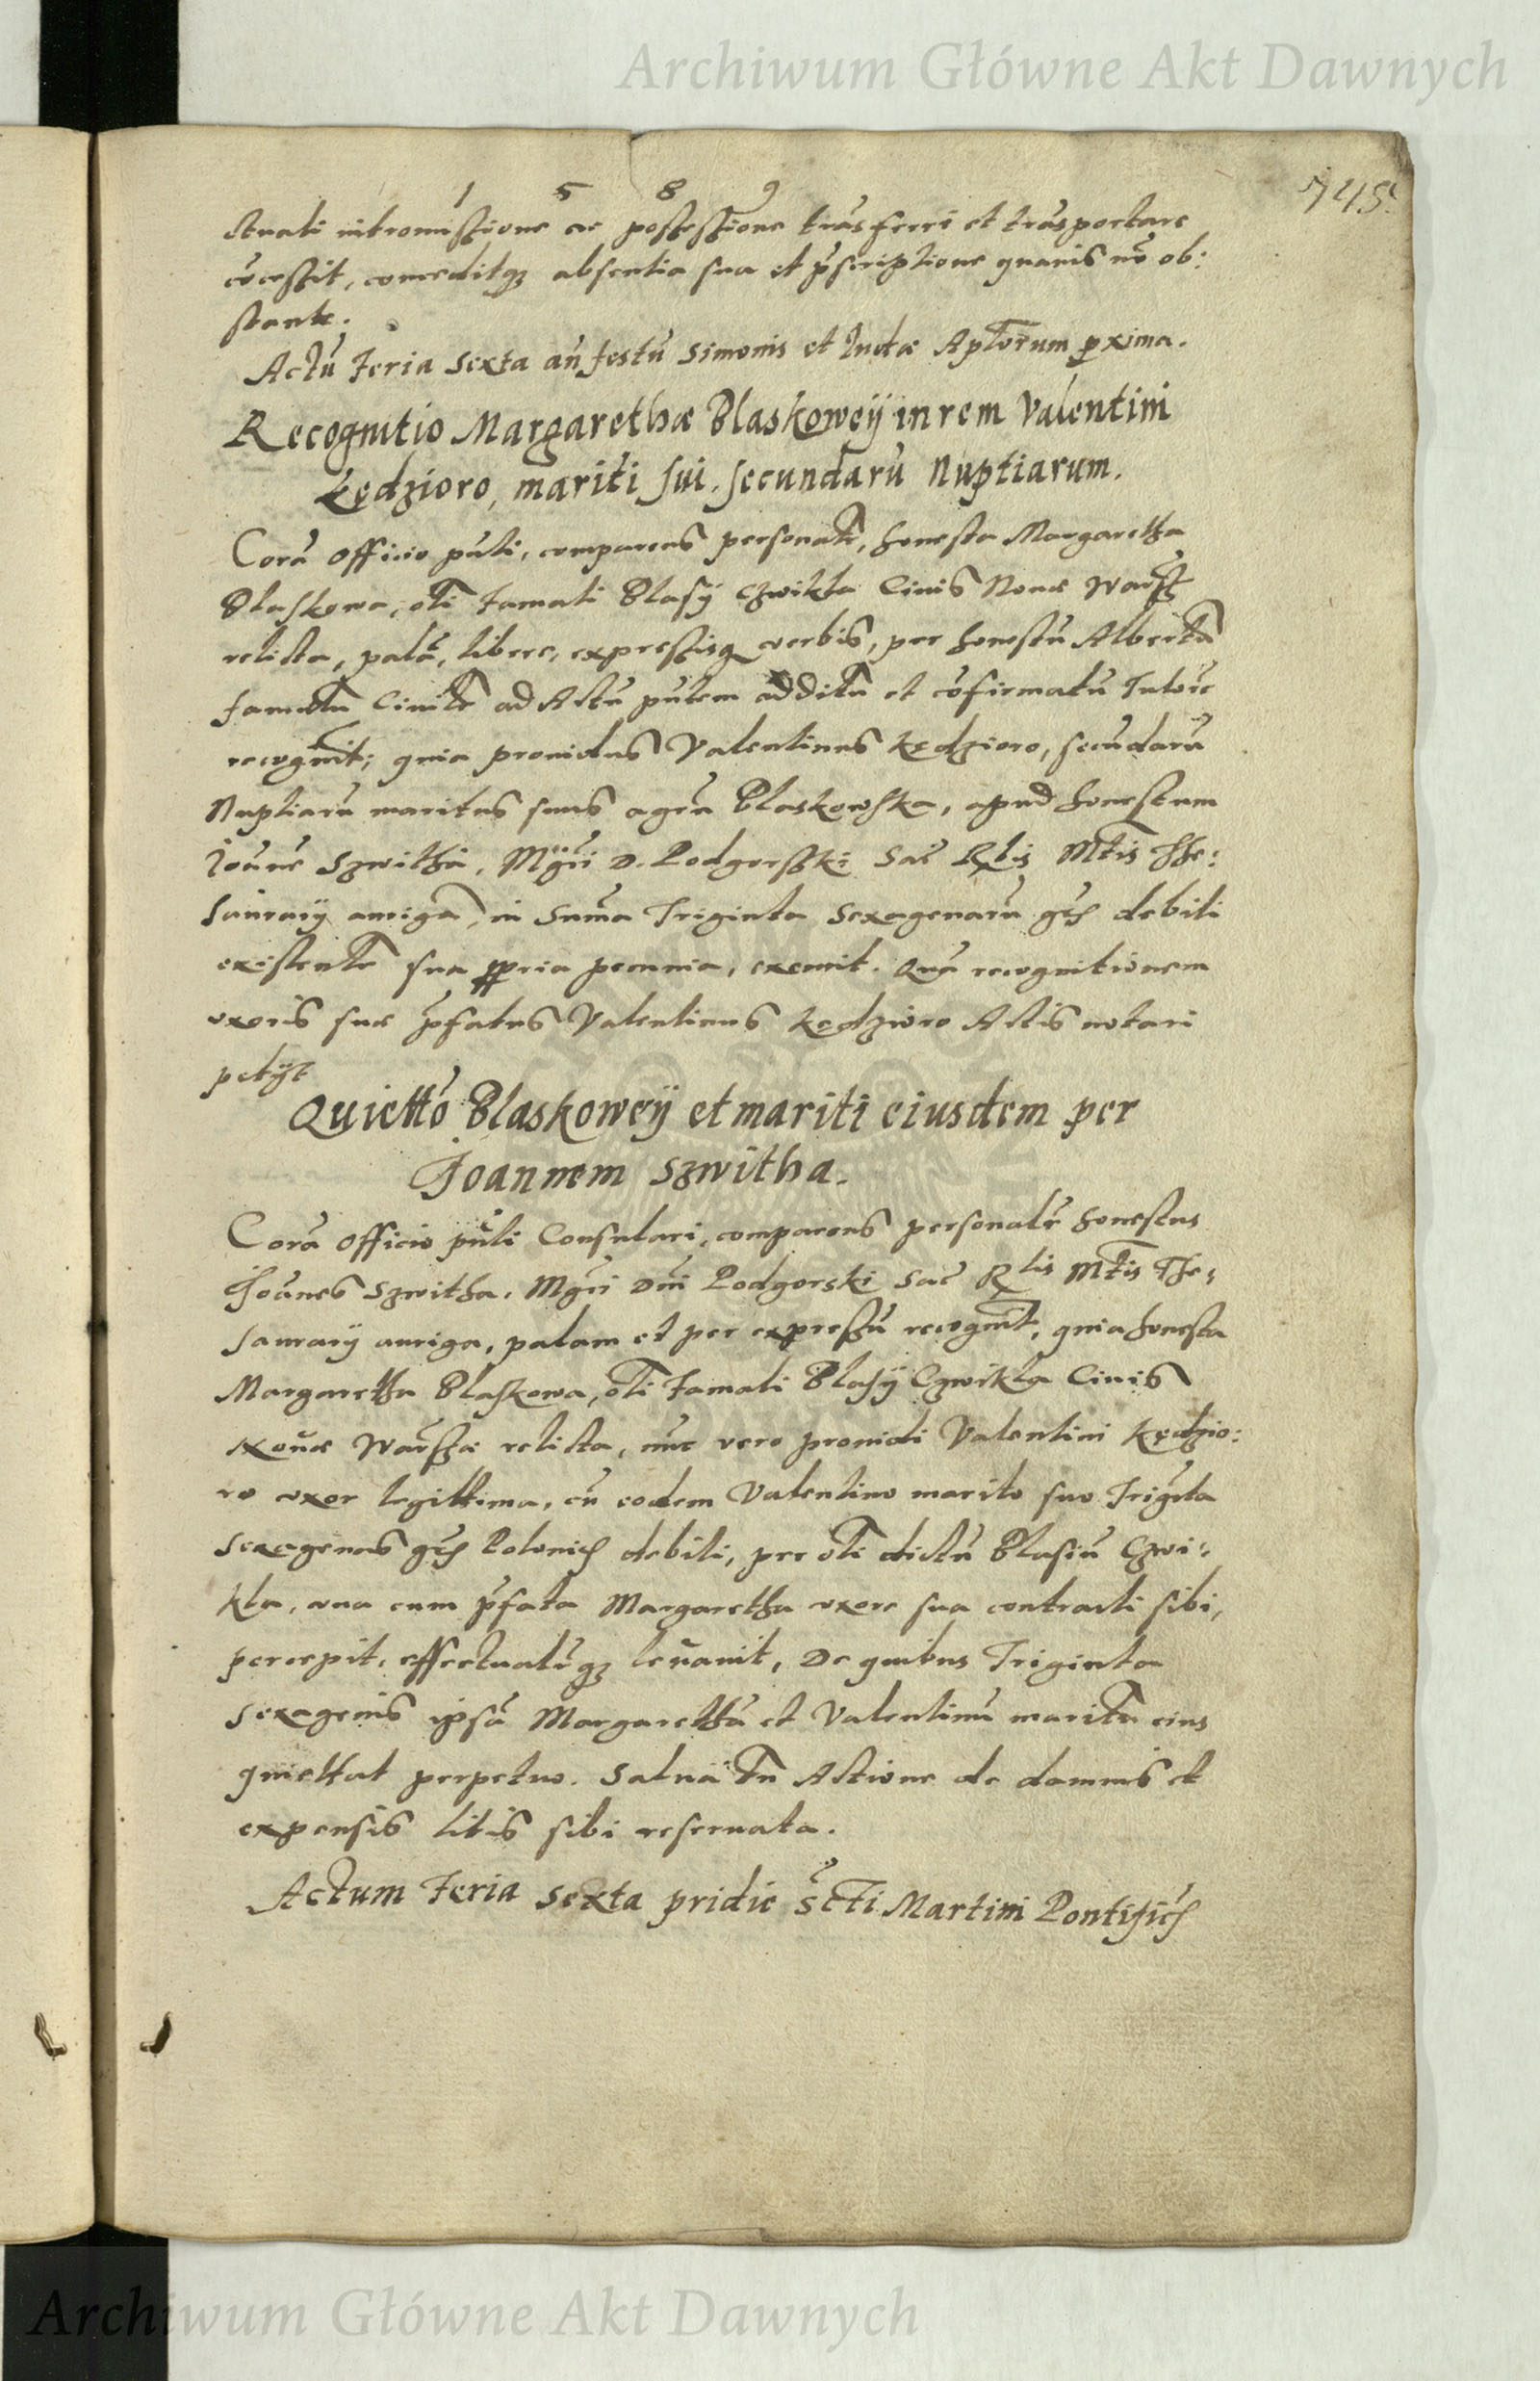 Archiwum Główne Akt Dawnych
1 5 8 9
745.
ctuali intromissione ac possessione trãsferri et trãsportare
cõcessit, conceditq₃ absentia sua et p̃scriptione quauis nõ ob:
stante.
Actũ Feria Sexta añ festũ Simonis et Iudæ Aplõrum ꝓxima.
Recognitio Margarethæ Blaskoweÿ in rem Valentini
Kędzioro, mariti sui. secundarũ Nuptiarum.
Corã Officio pñti, comparens personalr̃, honesta Margaretha
Blaskowa, oli͠ Famati Blasÿ Czwikla Ciuis Nouæ Warsz̃
relicta, palã, libere, expressisq₃ verbis, per honestũ Albertũ
Ciuitt͠ ad Actũ pñtem additũ et cõfirmatũ Tutorẽ
recognit͠; quia prouidus Valentinus Kędzioro, secũdarũ
Nuptiarũ maritus suus agrũ Blaskowska, apud honestum
Ioãnẽ Szwithã, Mgc̃i D. Podgorszki Sac̃ Rgĩs Mtĩs The:
saurarÿ aurigã, in Sum̃a Triginta Sexagenarũ gr̃s debiti
existente͠ sua ꝓpria pecunia, exemit. Quã recognitionem
vxoris suæ p̃fatus Valentinus Kędzioro Actis notari
petÿt
Quiettõ Blaskoweÿ et mariti eiusdem per
Joannem Szwitha.
Corã Officio pñti Consulari, comparens personalr̃ honestus
Joãnes Szwitha, Mgc̃i Dñi Podgorski Sac̃ Rlis Mtĩs The:
saurarÿ auriga, palam et per expressũ recognit͠, quia honesta
Margaretha Blaskowa, oli͠ Famati Blasÿ Czwikla Ciuis
Nouæ Warszæ relicta, nũc vero prouidi Valentini Kędzio:
ro vxor legittima, cũ eodem Valentino marito suo Trigĩta
Sexagenas gr̃s Polonic̃ debiti, per oli͠ dictũ Blasiũ Czwi:
kla, vna cum p̃fata Margaretha vxore sua contracti sibi,
percepit, effectualr̃q₃ leuauit, De quibus Triginta
Sexagenis ipsã Margarethã et Valentinũ maritũ eius
quiettat perpetuo. Saluã tñ Actione de damnis et
expensis litis sibi reseruata.
Actum Feria Sexta pridie Sc̃ti Martini Pontific̃
Archiwum Główne Akt Dawnych